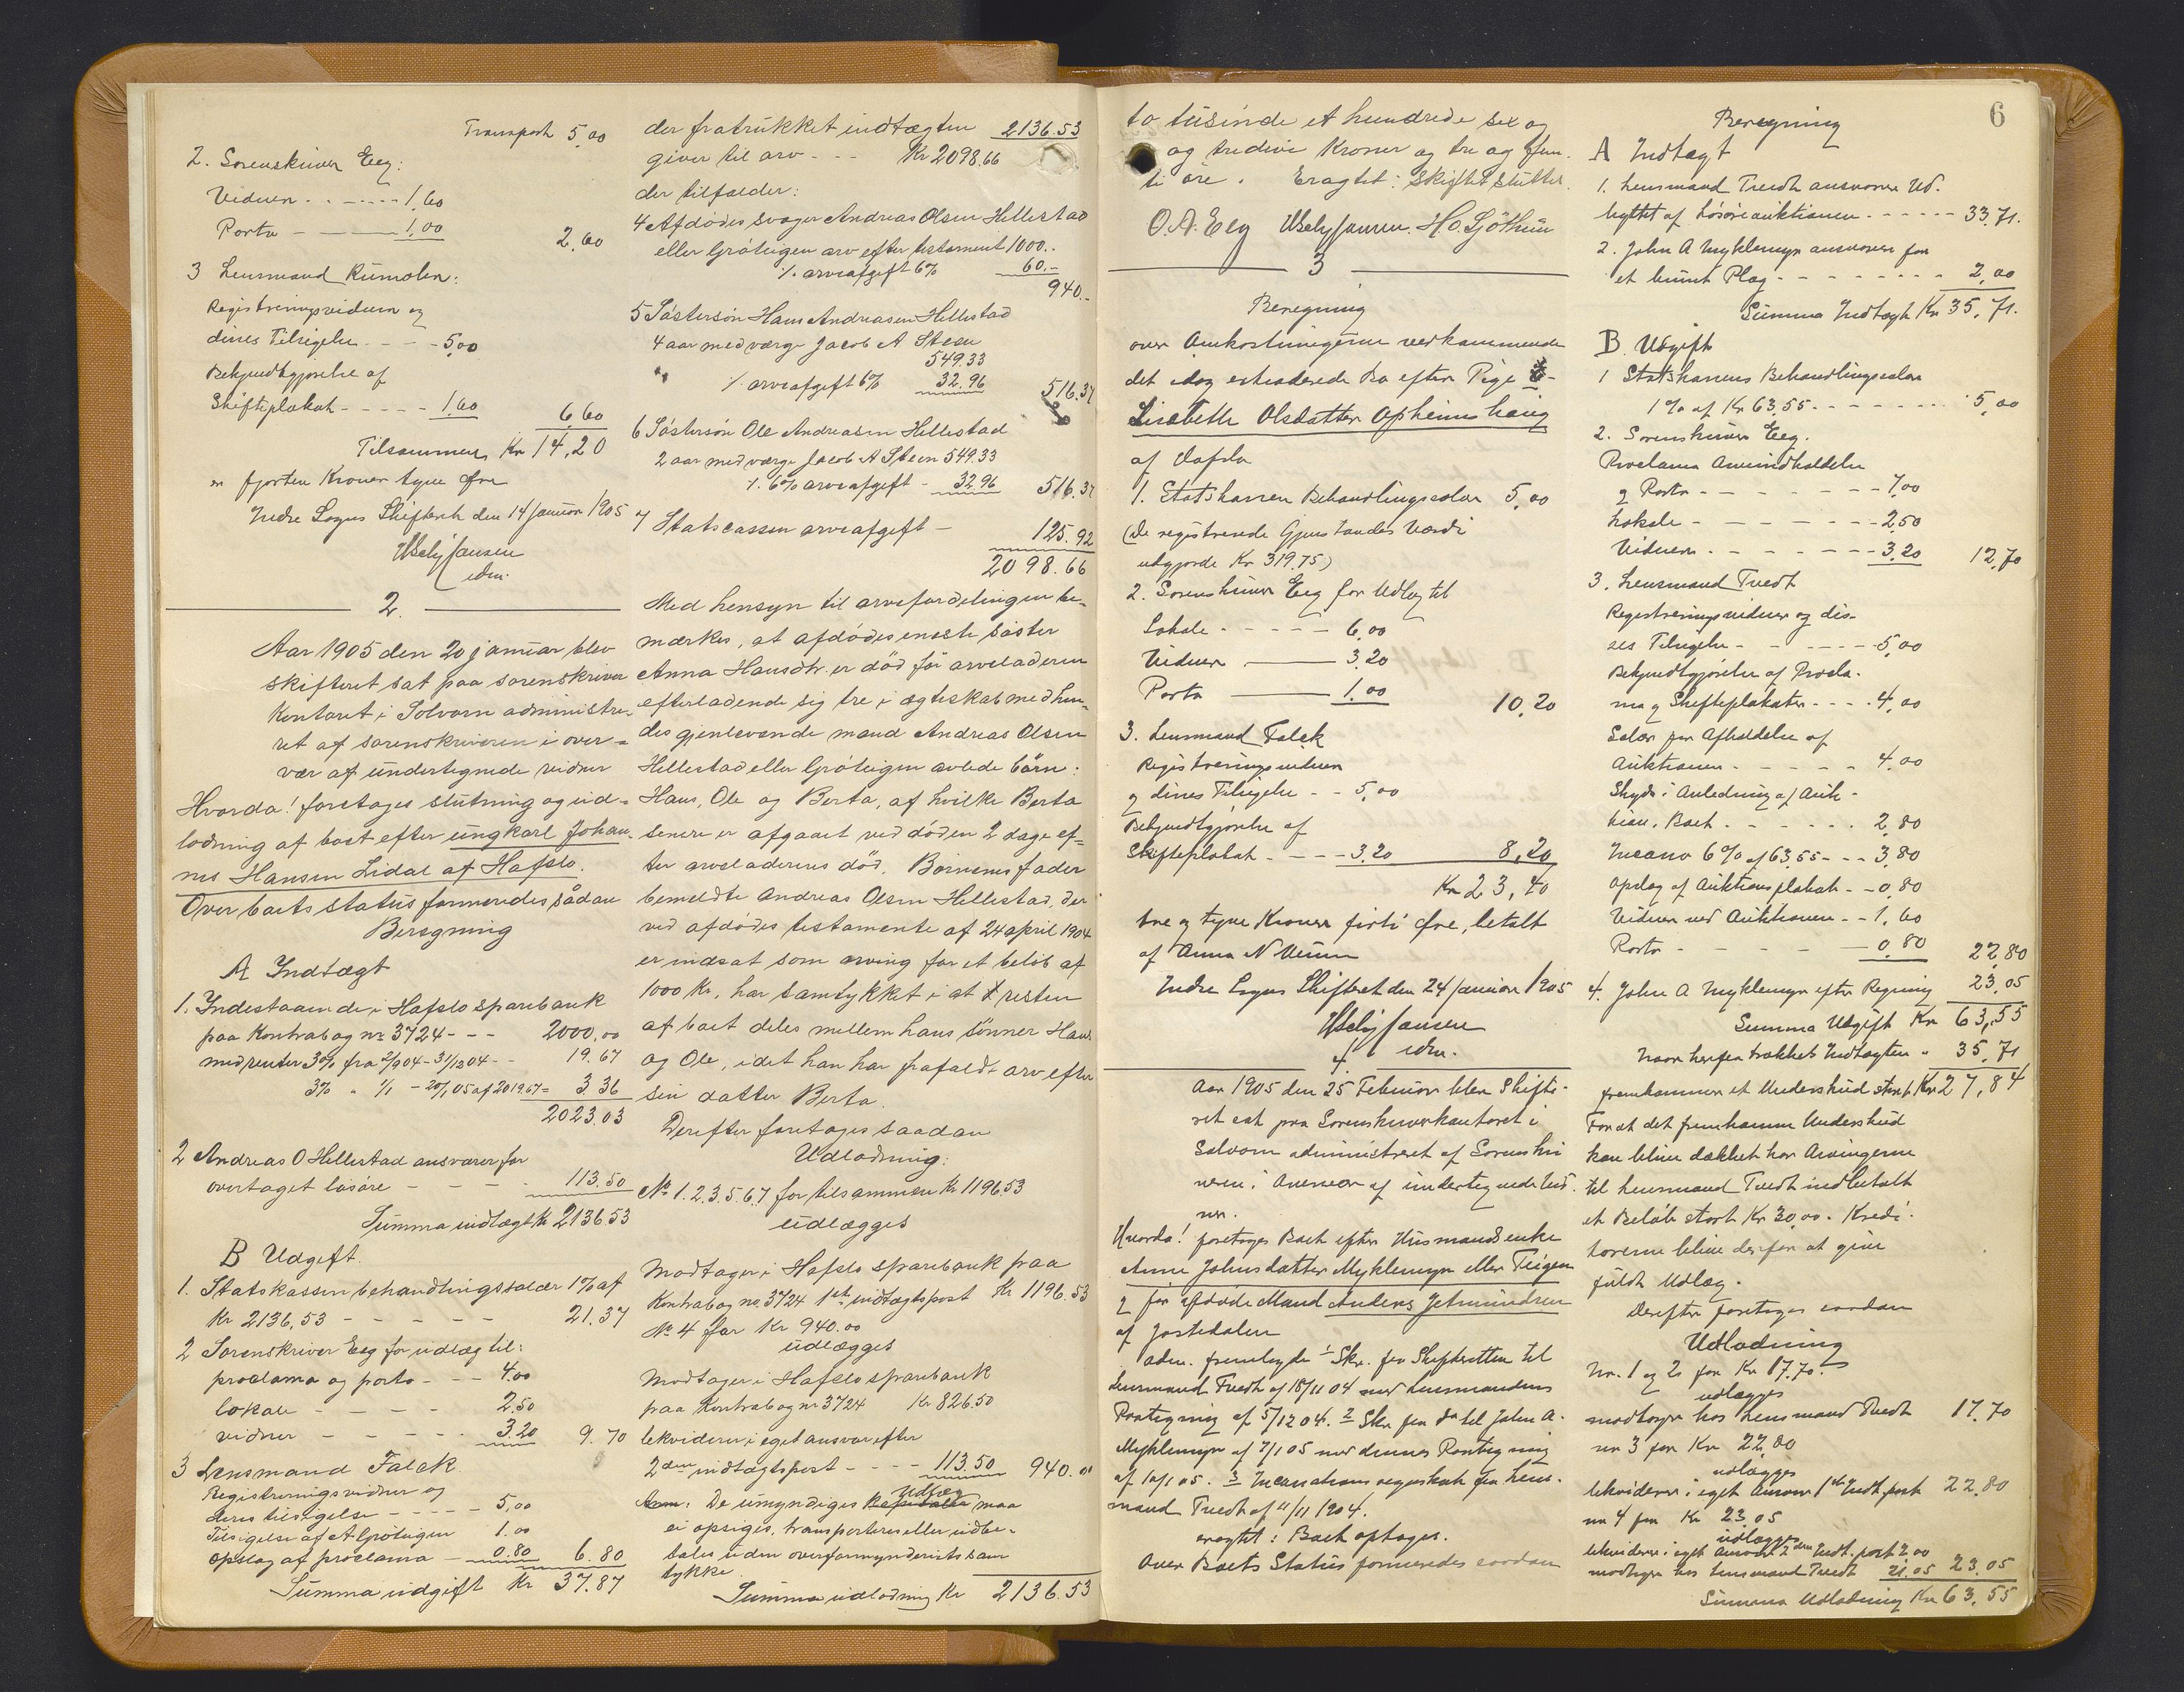 Transport 5,00
2. Sorenskriver Eeg:
Vidner - - - - - 1,60
Porto - 1,00 2,60
3 Lensmand Rumohr:
Registreringsvidner og
dines Tilsigelse - - - 5,00
Bekjendtgjørelse af
Skifteplakat - - - - - 1,60 6,60
Tilsammen Kr 14,20
er fjorten Kroner tyve Øre
Indre Sogns Skifteret den 14 Januar 1905
Wsely Jansen
edm.
2.
Aar 1905 den 20 januar blev
skifteret sat paa sorenskriver
kontoret i Solvorn administre-
ret af sorenskriveren i over=
vær af undertegnede vidner
Hvorda! foretoges slutning og ud=
lodning af boet efter ungkarl Johan-
nes Hansen Lidal af Hafslo.
Over boets status formeredes sådan
Beregning
A Indtægt
1. Indestaaende i Hafslo sparebank
paa Kontrabog nr 3724 - - - 2000,00
med renter 3% fra 2/9 04 - 31/12 04 - - 19.67
3% " 1/1 - 20/1 05 af 2019.67 = 3.36
2023.03
2 Andreas O Hellestad ansvarer for
overtaget løsøre - - - - 113.50
Summa indtægt Kr 2136.53
B Udgift.
1. Statskassen behandlingssalær 1% af
Kr 2136,53 - - - - - 21.37
2 Sorenskriver Eeg for udlæg til:
proclama og porto - - - 4.00
lokale - - - - 2.50
vidner - - - - - 3.20 9.70
3 Lensmand Falck
Registreringsvidner og
deres tilsigelse - - - - 5,00
Tilsigelse af A Grøteigen 1.00
Opslag af proclama - 0.80 6.80
Summa udgift Kr 37.87
der fratrukket indtægten 2136.53
giver til arv - - - Kr 2098,66
der tilfalder:
4 Afdødes svoger Andreas Olsen Hellestad
eller Grøteigen arv efter testament 1000.-
% arveafgift 6% 60.-
940.-
5 Søstersøn Hans Andreasen Hellestad
4 aar med værge Jacob A Steen
549.33
% arveafgift 6% 32.96 516.37
6 Søstersøn Ole Andreasen Hellestad
2 aar med værge Jacob A Steen 549.33
% 6% arveafgift - 32.96 516.37
7 Statscassen arveafgift - 125.92
2098.66
Med hensyn til arvefordelingen be-
mærkes, at afdødes eneste søster
Anna Hansdtr. er død før arveladeren
efterladende sig tre i ægteskab med hen-
des gjenlevende mand Andreas Olsen
Hellestad eller Grøteigen avlede børn:
Hans, Ole og Berta, af hvilke Berta
senere er afgaaet ved døden 2 dage ef=
ter arveladerens død. Børnenes fader
bemeldte Andreas Olsen Hellestad, der
ved afdødes testamente af 24 april 1904
er indsat som arving for et beløb af
1000 Kr, har samtykket i at resten
af boet deles mellem hans sønner Hans
og Ole, idet han har frafaldt arv efter
sin datter Berta.
Derefter foretoges saadan
Udlodning:
No 1. 2. 3. 5. 6. 7 for tilsammen Kr 1196.53
udlægges
Modtager i Hafslo sparebank paa
Kontrabog no. 3724 1ste indtægtspost Kr 1196.53
No 4 for Kr 940.00
udlægges
Modtager i Hafslo sparebank
paa Kontrabog nr 3724 Kr 826.50
likviderer i eget ansvar efter
2den indtægtspost - - - - 113.50 940.00
Udlæg
Anm: De umyndiges maa
ei opsiges, transporteres eller udbe-
tales uden overformynderiets sam
tykke.
Summa udlodning Kr 2136.53
6
to tusinde et hundrede sex og
og tredive Kroner og tre og fem-
ti øre. Eragtet: Skiftet sluttet.
O.A. Eeg Wsely Jansen. H.O. Sjøthun
3
Beregning
over Omkostningerne vedkommende
det idag extraderede Bo efter Pige
Lisabeth Olsdatter Opheimshaug
af Hafslo
1. Statskassen Behandlingssalær 5,00
(De registrerede Gjenstandes Værdi
udgjorde Kr 319.75)
2. Sorenskriver Eeg for Udlæg til
Lokale - - - - - 6,00
Vidner 3,20
Porto 1.00 10,20
3. Lensmand Falck
Registreringsvidner
og dines Tilsigelse - - 5,00
Bekjendtgjørelse af
Skifteplakat - - - - 3,20 8,20
Kr 23,40
tre og tyve Kroner førti Øre, betalt
af Anna N Venum
Indre Sogns Skifteret den 24 Januar 1905
Wsely Jansen
edm.
4.
Aar 1905 den 25 Februar blev Skifte-
ret sat paa Sorenskriverkontoret i
Solvorn administreret af Sorenskri
veren i Overvær af undertegnede Vid-
ner.
Hvorda! foretoges Boet efter Husmandsenke
Anne Johnsdatter Myklemyr eller Teigen
og før afdøde Mand Anders Jetmundsen
af Jostedalen
adm. fremlagde 1 Skr. fra Skifteretten til
Lensmand Tvedt af 18/11 04 med Lensmandens
Paategning af 5/12 04. 2 Skr. fra do til John A.
Myklemyr af 7/1 05 med dennes Paategning
af 10/1 05. 3 Incassationsregnskab fra Lens-
mand Tvedt af 11/11 1904.
eragtet: Boet optages.
Over Boets Status formeredes saadan
Beregning
A Indtægt
1. Lensmand Tvedt ansvarer Ud-
byttet af Løsøreauktionen - - - - - 33,71.
2. John A Myklemyr ansvarer for
et Plag - - - - - - - - - 2,00
Summa Indtægt Kr 35,71.
B. Udgift
1 Statskassens Behandlingssalær
1% af Kr 63,55 - - - - - - - 5,00
2. Sorenskriver Eeg.
Proclama
og Porto - - - - - - - 7,00
Lokale - - - - - - - 2,50
Vidner - - - - - - - 3,20 12,70
3. Lensmand Tvedt
Registreringsvidner og dis-
ses Tilsigelse - - - - - 5,00
Bekjendtgjørelse af Procla-
ma og Skifteplakater - - - - 4,00
Salær for Afholdelse af
Auktionen - - - - - - 4,00
Skyds i Anledning af Auk-
tion, Baat - - - - - - 2,80
Incasso 6% af 63,55 - - - 3,80
Opslag af Auktionsplakat - - 0,80
Vidner ved Auktionen - - 1,60
Porto - - - - - 0,80 22,80
4. John A Myklemyr efter Regning 23,05
Summa Udgift Kr 63,55
Naar herfra trækkes Indtægten " 35,71
fremkommer et Underskud stort Kr 27,84
For at det fremkomne Underskud
kan blive dækket har Arvingerne
til Lensmand Tvedt indbetalt
et Beløb stort Kr 30,00. Kredi-
torerne blive derfor at give
fuldt Udlæg.
Derefter foretoges saadan
Udlodning
No. 1 og 2 for Kr 17.70.
udlægges
modtager hos Lensmand Tvedt 17,70
no 3 for Kr 22,80
udlægges
likviderer i eget Ansvar 1ste Indt. post 22,80
no 4 for Kr 23,05
udlægges
likviderer i eget Ansvar 2den Indt. post 2,00
modtager hos Lensmand Tvedt 21,05 23,05
Summa Udlodning Kr 63,55